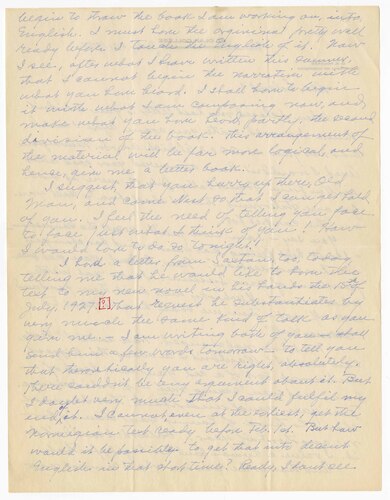 begin to throw the book I am working on, into
English. I must have the original pretty well
ready before I touch the English of it. Now
I see, after what I have written this summer,
that I cannot begin the narrative with
what you have heard. I shall have to begin
it with what I am composing now, and
make what you have heard, partly, the second
division of the book. This arrangement of
the material will be far more logical, and
hence, give me a better book.
I suggest, that you hurry up there, Old
Man, and come West so that I can get hold
of you. I feel the need of telling you face
to face just what I think of you! How
I would love to do so to-night!
I had a letter from too, today
telling me that he would like to have the
text to my new novel in his hands the 15 of
July, 1927. That request he substantiates by
very much the same kind of talk as you
give me. — I am writing both of you — shall
send him a few words tomorrow — to tell you
that theoretically you are right, absolutely.
There couldn't be any argument about it. But
I doubt very much that I could fulfil my
end of it. I cannot, even at the earliest, get the
Norwegian text ready before Feb. 1st. But how
would it be possible to get that into decent
English in that short time? Really, I don't see